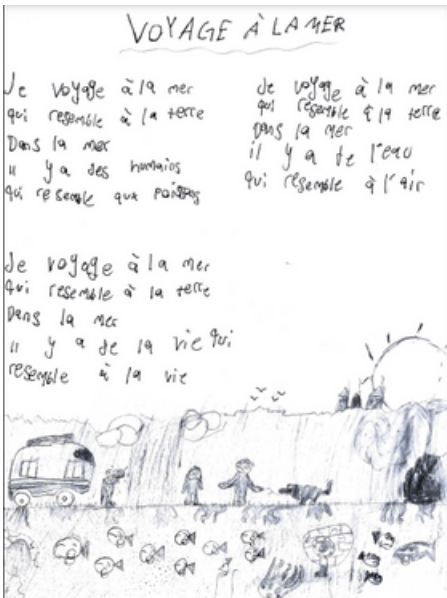 VOYAGE À LA MER
Je voyage à la mer
qui resemble à la terre
Dans la mer
il y a des humains
qui resemble aux poissos
Je voyage à la mer
qui resemble à la terre
Dans la mer
il y a de l'eau
qui resemble à l'air
Je voyage à la mer
qui resemble à la terre
Dans la mer
il y a de la vie qui
resemble à la vie